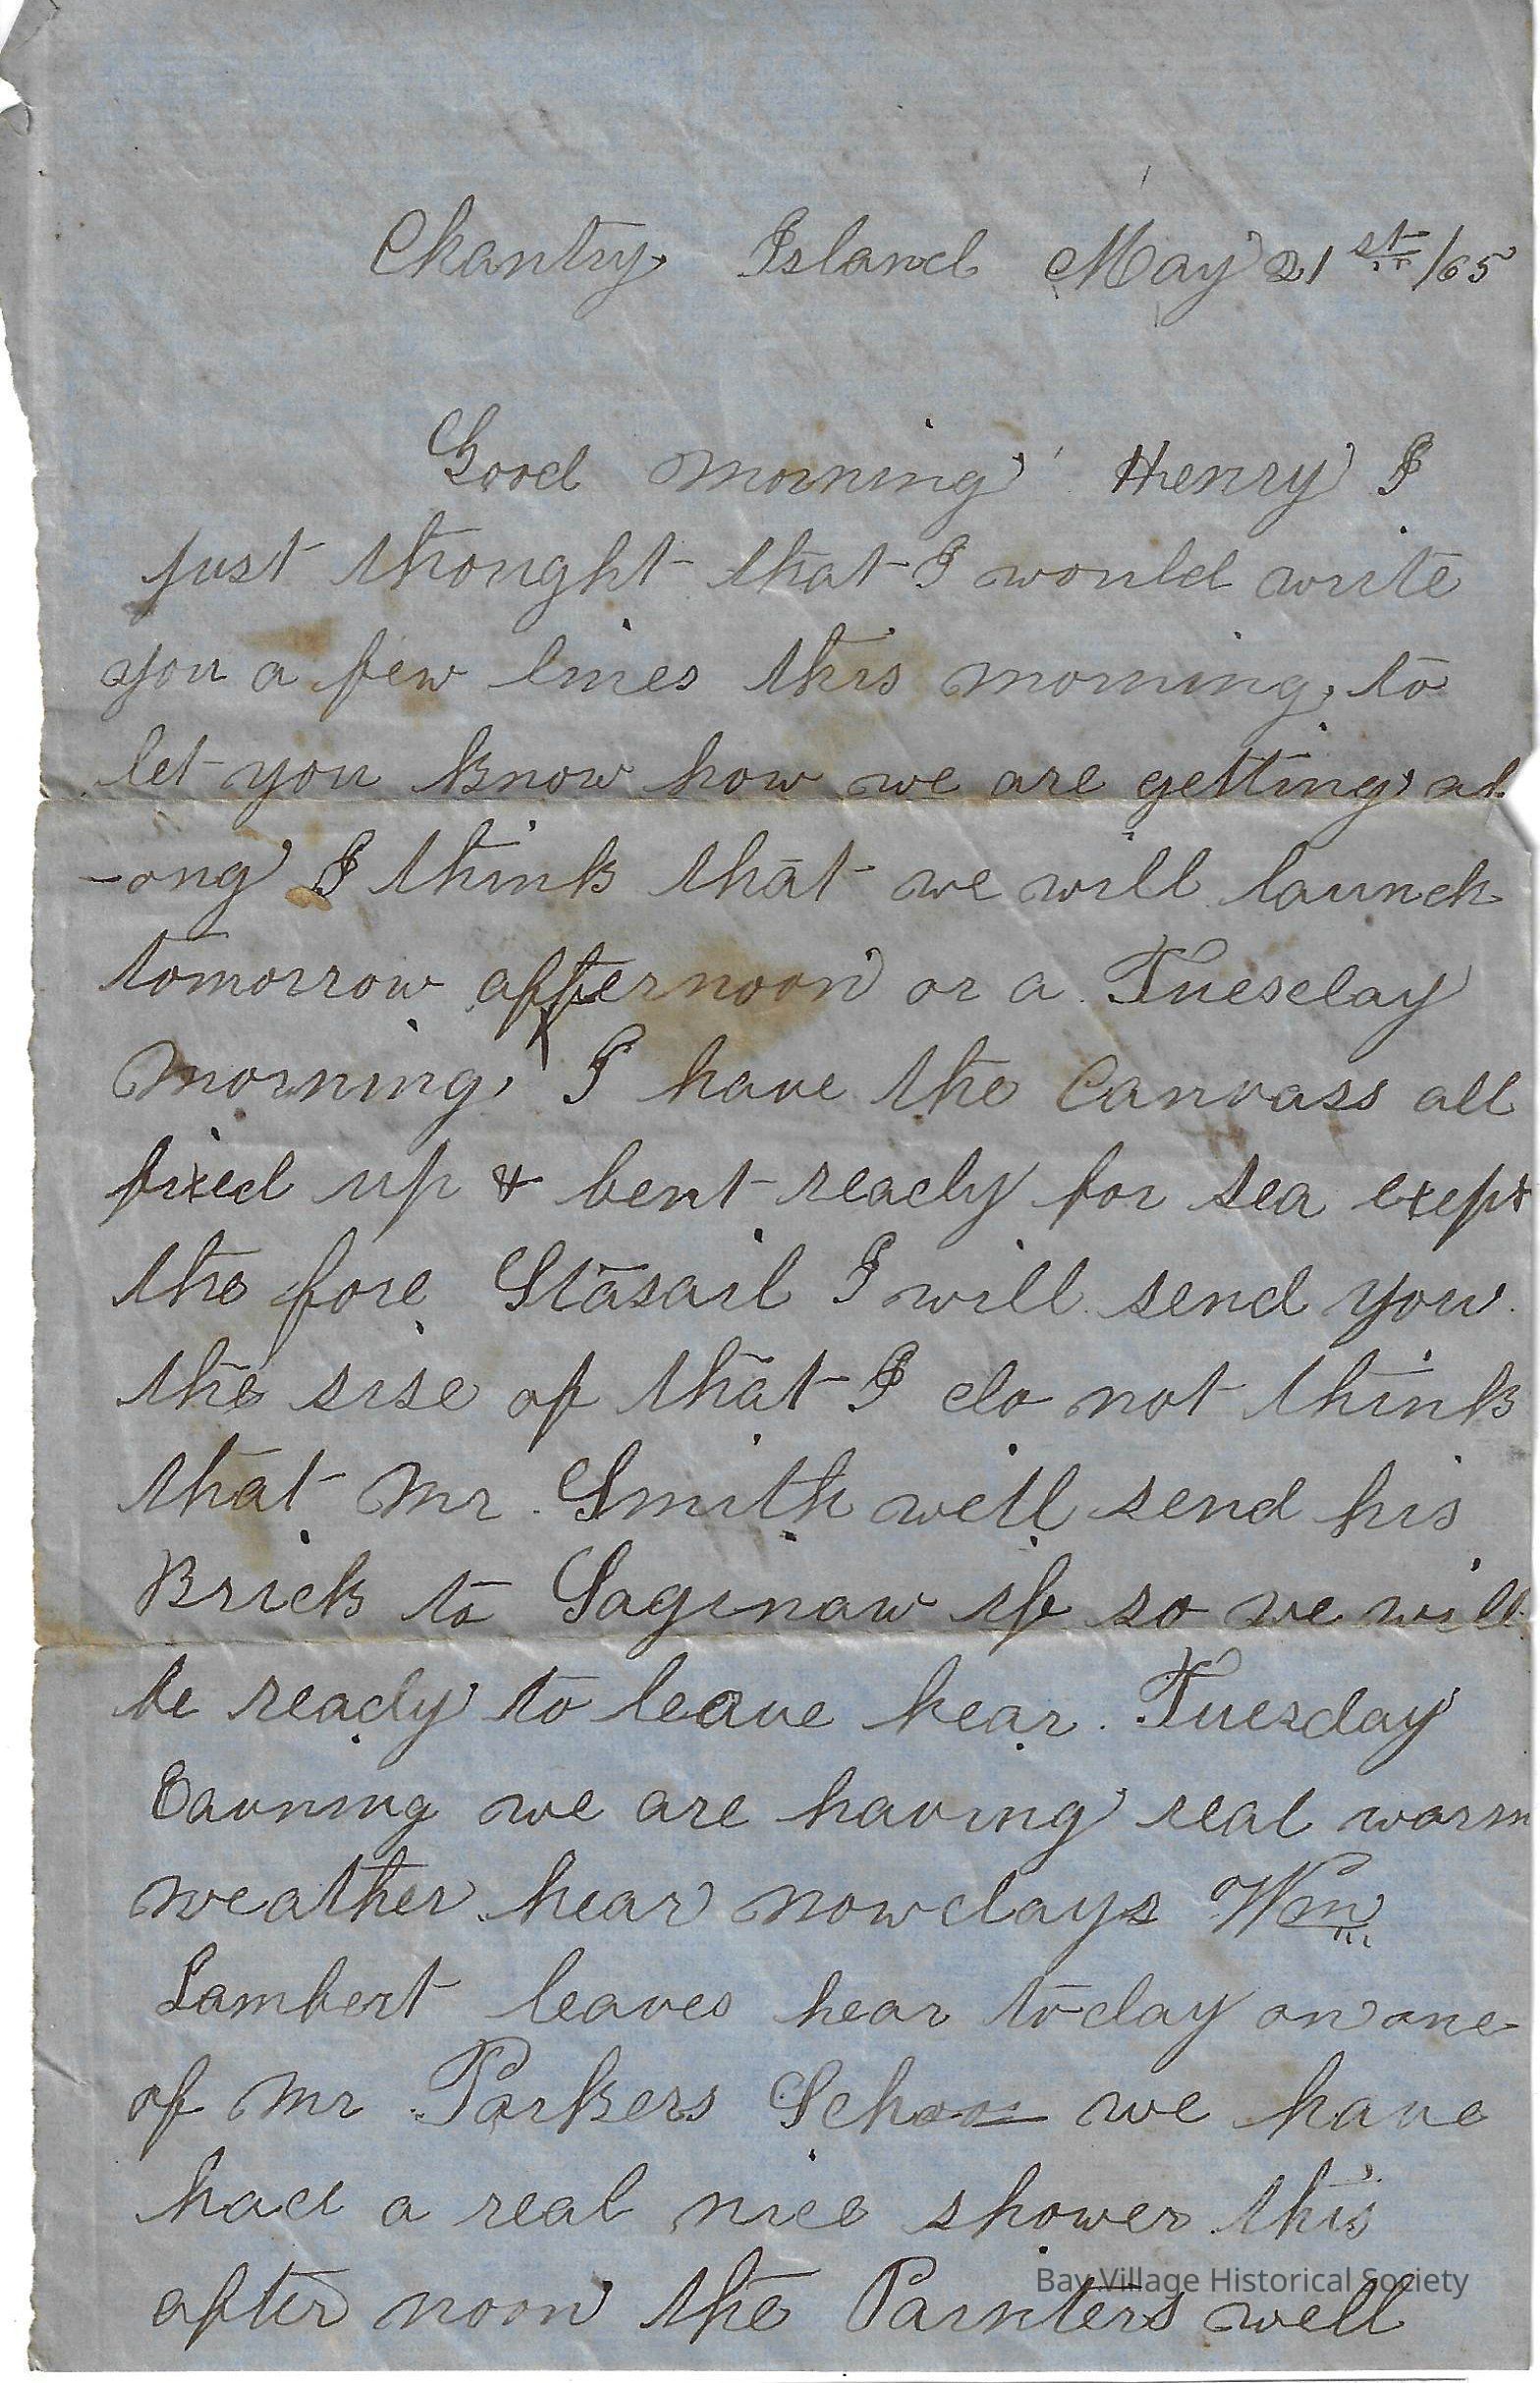 Chantry Island May 21st/65
Good morning Henry I
just thought that I would write
you a few lines this morning to
let you know how we are getting al
-ong I think that we will launch
tomorrow afternoon or a Tuesday
morning, I have the Canvass all
fixed up & bent ready for sea exept
the fore Stasail I will send you
the sise of that I do not think
that Mr. Smith will send his
Brick to Saginaw if so we will
be ready to leave hear. Tuesday
Eavning we are having real warm
weather hear nowdays Wm
Lambert leaves hear today on one
of Mr Parkers Schoo we have
had a real nice shower this
after noon the Painters well
Bay Village Historical Society